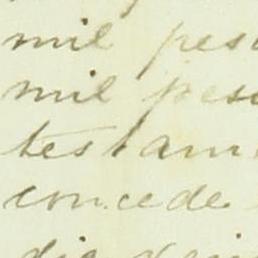 mil pes
mil pes
testam
concede